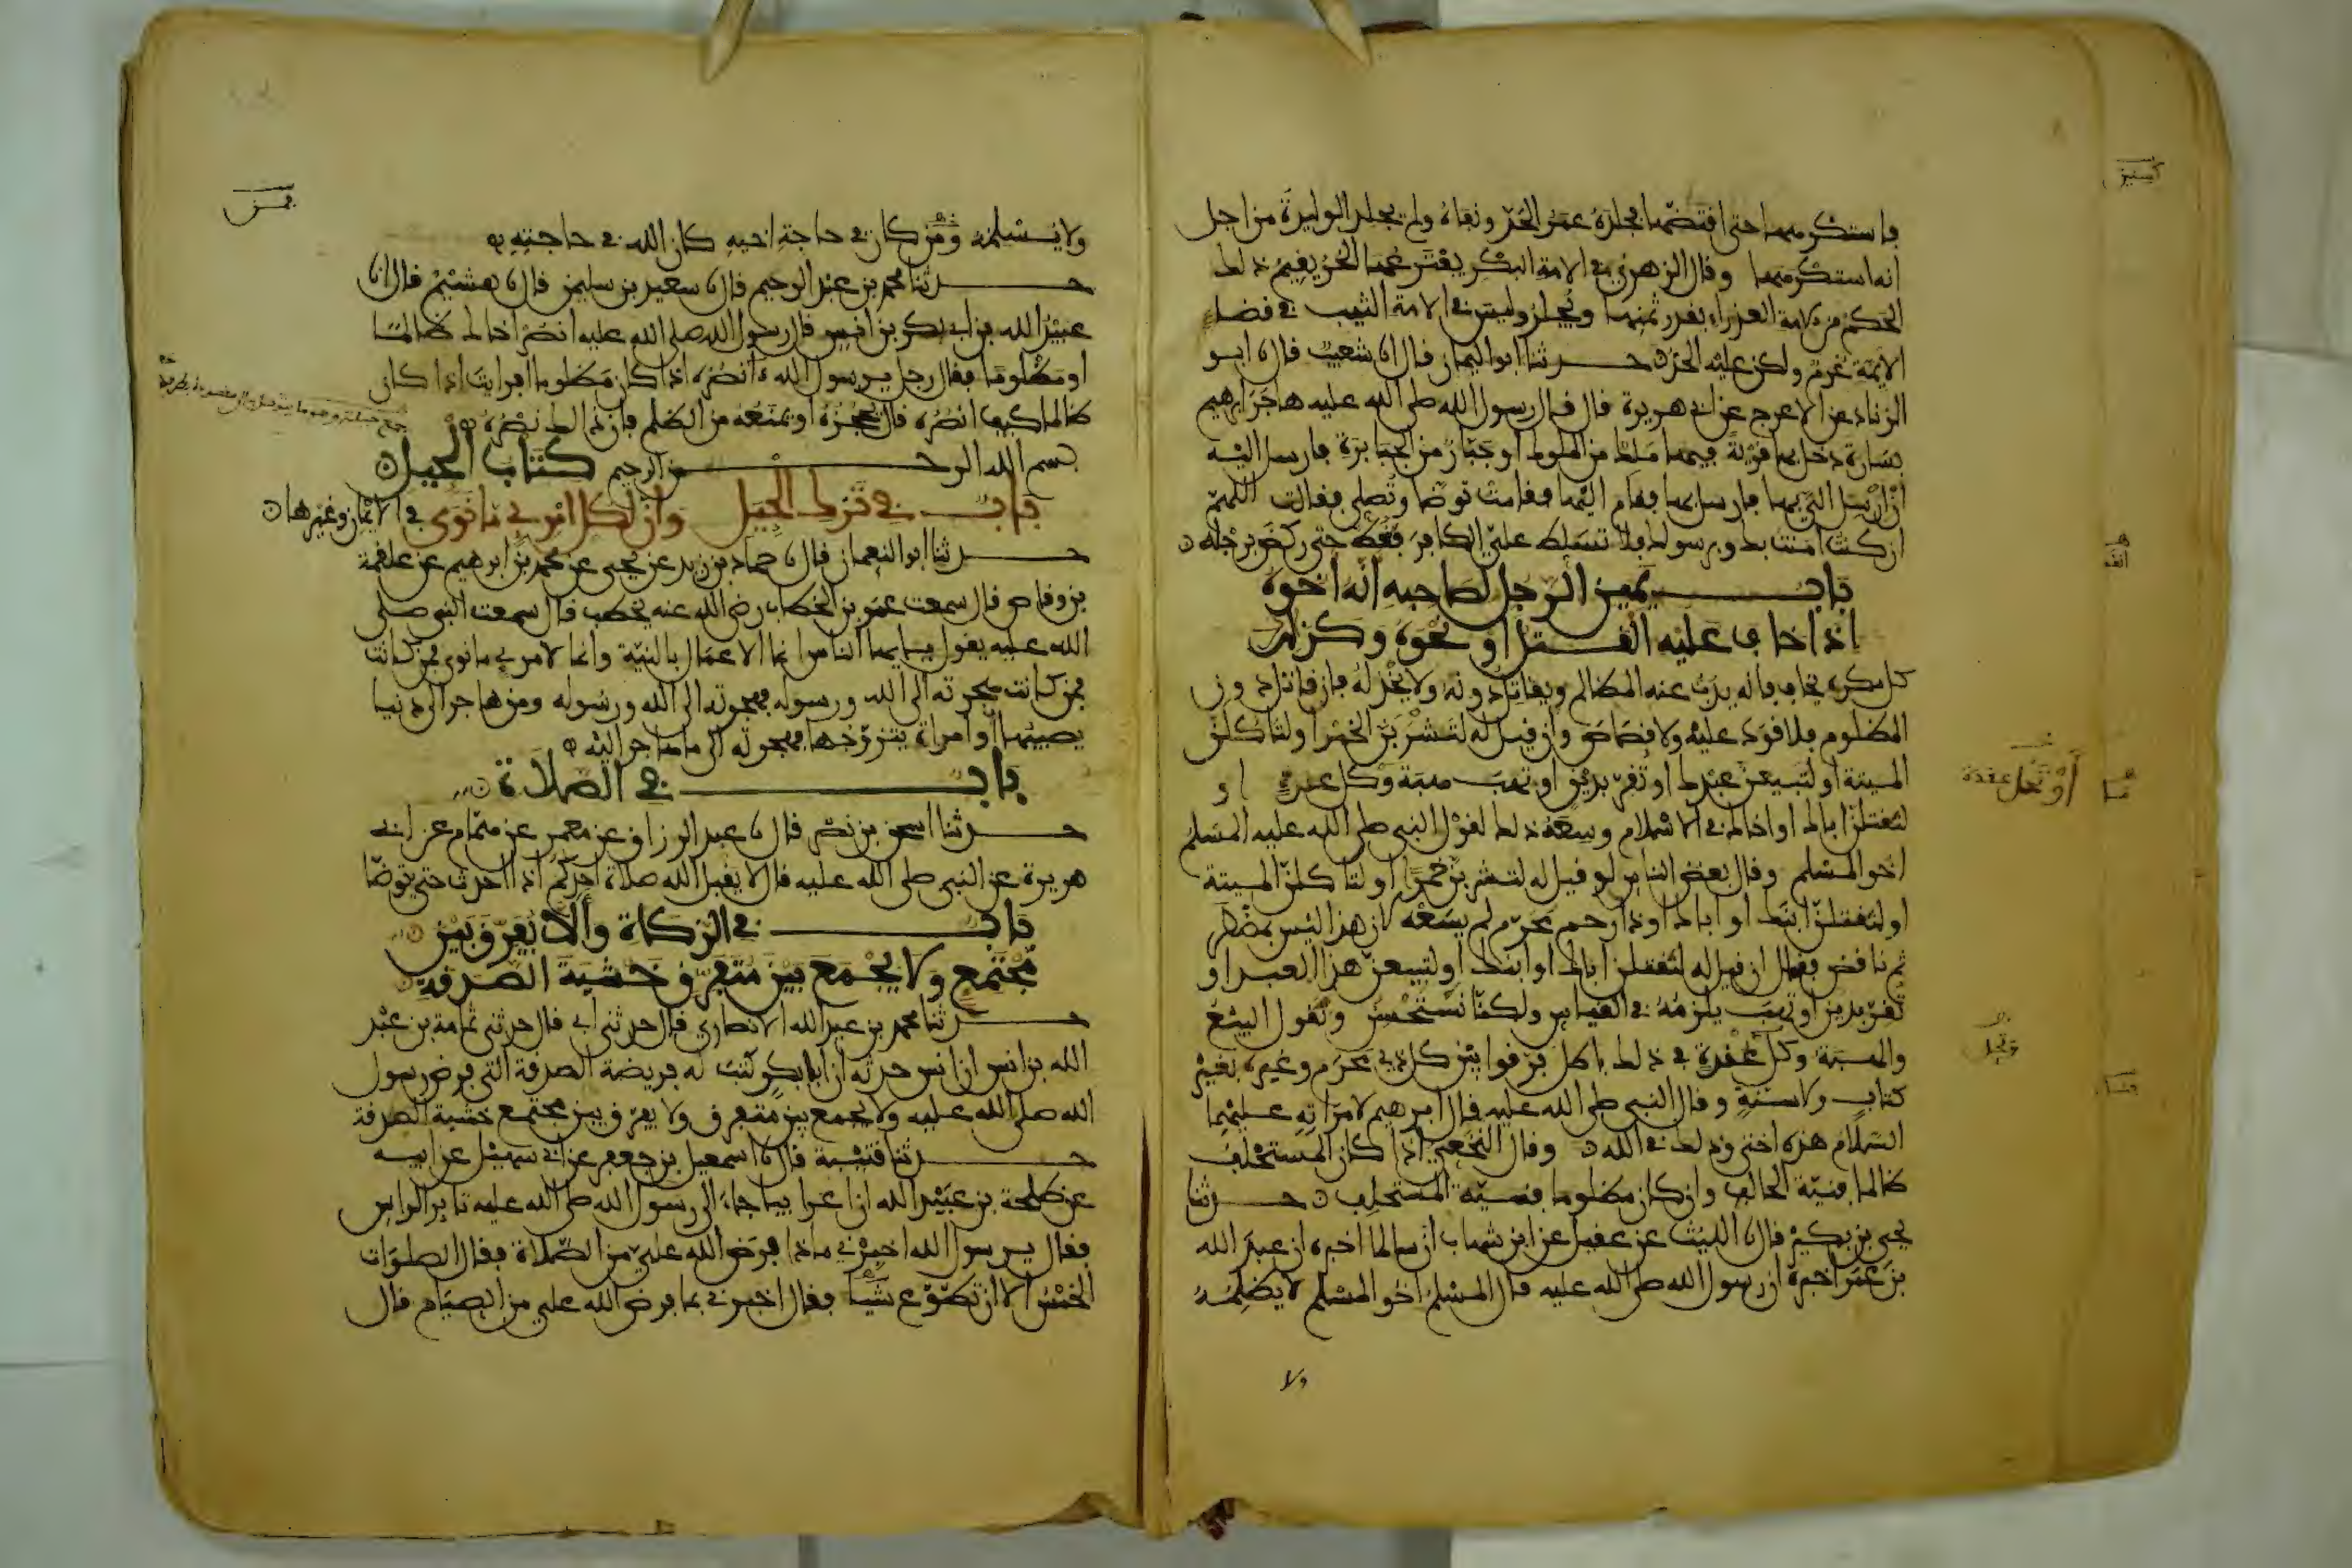 فاستكرهها حتى افتضها فجلده عمر الحد ونفاه ولم يجلد الوليدة من اجل
انه استكرهها وقال الزهري في الامة البكر يفترعها الحر يقيم ذلك
الحكم من الامة العذراء بقدر ثمنها ويجلد وليس في الامة الثيب في قضاء
الايمة غرم ولكن عليه الحد حدثنا ابو اليمان قال انا شعيب قال نا ابو
الزناد عن الاعرج عن ابي هريرة قال قال رسول الله صلى الله عليه هاجر ابرهيم
بسارة دخل بها قرية فيها ملك من الملوك او جبار من الجبابرة فارسل اليه
ان ارسل الي بها فارسل بها فقام اليها فقامت توضا وتصلي فقالت اللهم
ان كنت امنت بك وبرسولك فلا تسلط علي الكافر فغط حتى ركض برجله
باب يمين الرجل لصاحبه انه اخوه
اذا خاف عليه القتل او نحوه وكذلك
كل مكره يخاف فانه يذب عنه المظالم ويقاتل دونه ولا يخذله فان قاتل دون
المظلوم فلا قود عليه ولا قصاص وان قيل له لتشربن الخمر او لتاكلن
الميتة او لتبيعن عبدك او تقر بدين او تهب هبة وكل عقدة او
او تحل عقدة
لتقتلن اباك او اخاك في الاسلام وسعه ذلك لقول النبي صلى الله عليه المسلم
اخو المسلم وقال بعض الناس لو قيل له لتشربن خمرا او لتاكلن الميتة
او لتقتلن ابنك او اباك او ذا رحم محرم لم يسعه لان هذا ليس بمضطر
ثم ناقض فقال ان قيل له لتقتلن اباك او ابنك او لتبيعن هذا العبد او
تقر بدين او تهب يلزمه في القياس ولكنا نستحسن ونقول البيع
والهبة وكل عقدة في ذلك باطل فرقوا بين كل ذي محرم وغيره بغير
كتاب ولا سنة وقال النبي صلى الله عليه قال ابرهيم لامراته عليهما
السلام هذه اختي وذلك في الله وقال النخعي اذا كان المستحلف
ظالما فنية الحالف وان كان مظلوما فنية المستحلف حدثنا
يحيى بن بكير قال نا الليث عن عقيل عن ابن شهاب ان سالما اخبره ان عبد الله
بن عمر اخبره ان رسول الله صلى الله عليه قال المسلم اخو المسلم لا يظلمه
ولا
ولا يسلمه ومن كان في حاجة اخيه كان الله في حاجته
حدثنا محمد بن عبد الرحيم قال نا سعيد بن سليمن قال نا هشيم قال انا
عبيد الله بن ابي بكر بن انس قال رسول الله صلى الله عليه انصر اخاك ظالما
او مظلوما فقال رجل يرسول الله انصره اذا كان مظلوما افرايت اذا كان
ظالما كيف انصره قال تحجزه او تمنعه من الظلم فان ذلك نصره
بسم الله الرحمن الرحيم كتاب الحيل
باب في ترك الحيل وان لكل امرئ ما نوى في الايمان وغيرها
حدثنا ابو النعمان قال نا حماد بن زيد عن يحيى عن محمد بن ابرهيم عن علقمة
بن وقاص قال سمعت عمر بن الخطاب رضي الله عنه يخطب قال سمعت النبي صلى
الله عليه يقول يايها الناس انما الاعمال بالنية وانما لامرئ ما نوى فمن كانت
فمن كانت هجرته الى الله ورسوله فهجرته الى الله ورسوله ومن هاجر الى دنيا
يصيبها او امراة يتزوجها فهجرته الى ما هاجر اليه
باب في الصلاة
حدثنا اسحق بن نصر قال نا عبد الرزاق عن معمر عن همام عن ابي
هريرة عن النبي صلى الله عليه قال لا يقبل الله صلاة احدكم اذا احدث حتى يتوضا
باب في الزكاة والا يفرق بين
مجتمع ولا يجمع بين متفرق خشية الصدقة
حدثنا محمد بن عبد الله الانصاري قال حدثني ابي قال حدثني ثمامة بن عبد
الله بن انس ان انس حدثه ان ابا بكر كتب له فريضة الصدقة التي فرض رسول
الله صلى الله عليه ولا يجمع بين متفرق ولا يفرق بين مجتمع خشية الصدقة
حدثنا قتيبة قال نا اسمعيل بن جعفر عن ابي سهيل عن ابيه
عن طلحة بن عبيد الله ان اعرابيا جاء الى رسول الله صلى الله عليه ثاير الراس
فقال يرسول الله اخبرني ماذا فرض الله علي من الصلاة فقال الصلوات
الخمس الا ان تطوع شيا فقال اخبرني بما فرض الله علي من الصيام قال